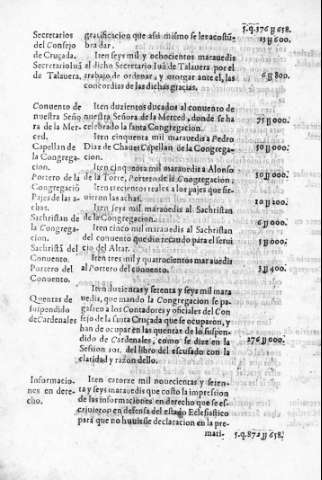 5.q.176 ɏ 658.
Secretarios gratificacion que assi mismo se les acostũ- 13 ɏ 600.
del Consejo bra dar.
de Cruçada. Iten seys mil y ochocientos marauedis
Secretario Iuã al dicho Secretario Iuã de Talauera por el
de Talauera, trabajo de ordenar, y otorgar ante el, las 6 ɏ 800.
concordias de las dichas gracias.
Conuento de Iten duzientos ducados al conuento de
nuestra Seño nuestra Señora de la Merced, donde se ha 75 ɏ 000.
ra de la Mer- celebrado la santa Congregacion.
ced. Iten cinquenta mil marauedis a Pedro
Capellan de Diaz de Chaues Capellan de la Congrega- 50 ɏ 000.
la Congrega- cion.
cion. Iten cinquenta mil marauedis a Alonso
Portero de la de la Torre, Portero de la Congregacion. 50 ɏ 000.
Congregació Iten trecientos reales a los pajes que sir-
Pajes de las a- uieron las achas. 10 ɏ 200.
chas. Iten seys mil marauedis al Sachristan
Sachristan de de la Congregacion. 6 ɏ 000.
la Congrega- Iten cinco mil marauedis al Sachristan
cion. del conuento que dio recaudo para el serui 5 ɏ 000.
Sachristã del cio del Altar.
Conuento. Iten tres mil y quatrocientos marauedis
Portero del al Portero del conuento. 3 ɏ 400.
Conuento.
Iten duzientas y setenta y seys mil mara
Quentas de uedis, que mando la Congregacion se pa-
suspendido gassen a los Contadores y oficiales del Con
de Cardenales sejo de la santa Cruçada que se ocuparon, y
han de ocupar en las quentas de lo suspen-
dido de Cardenales, como se dize en la 276 ɏ 000.
Session 101. del libro del escusado con la
claridad y razon dello.
Informacio- Iten catorze mil nouecientas y seten-
nes en dere- ta y seys marauedis que costo la impression
cho. de las informaciones en derecho que se es-
criuieron en defensa del estado Eclesiastico
para que no huuiesse declaracion en la pre-
mati- 5.q.872 ɏ 658.